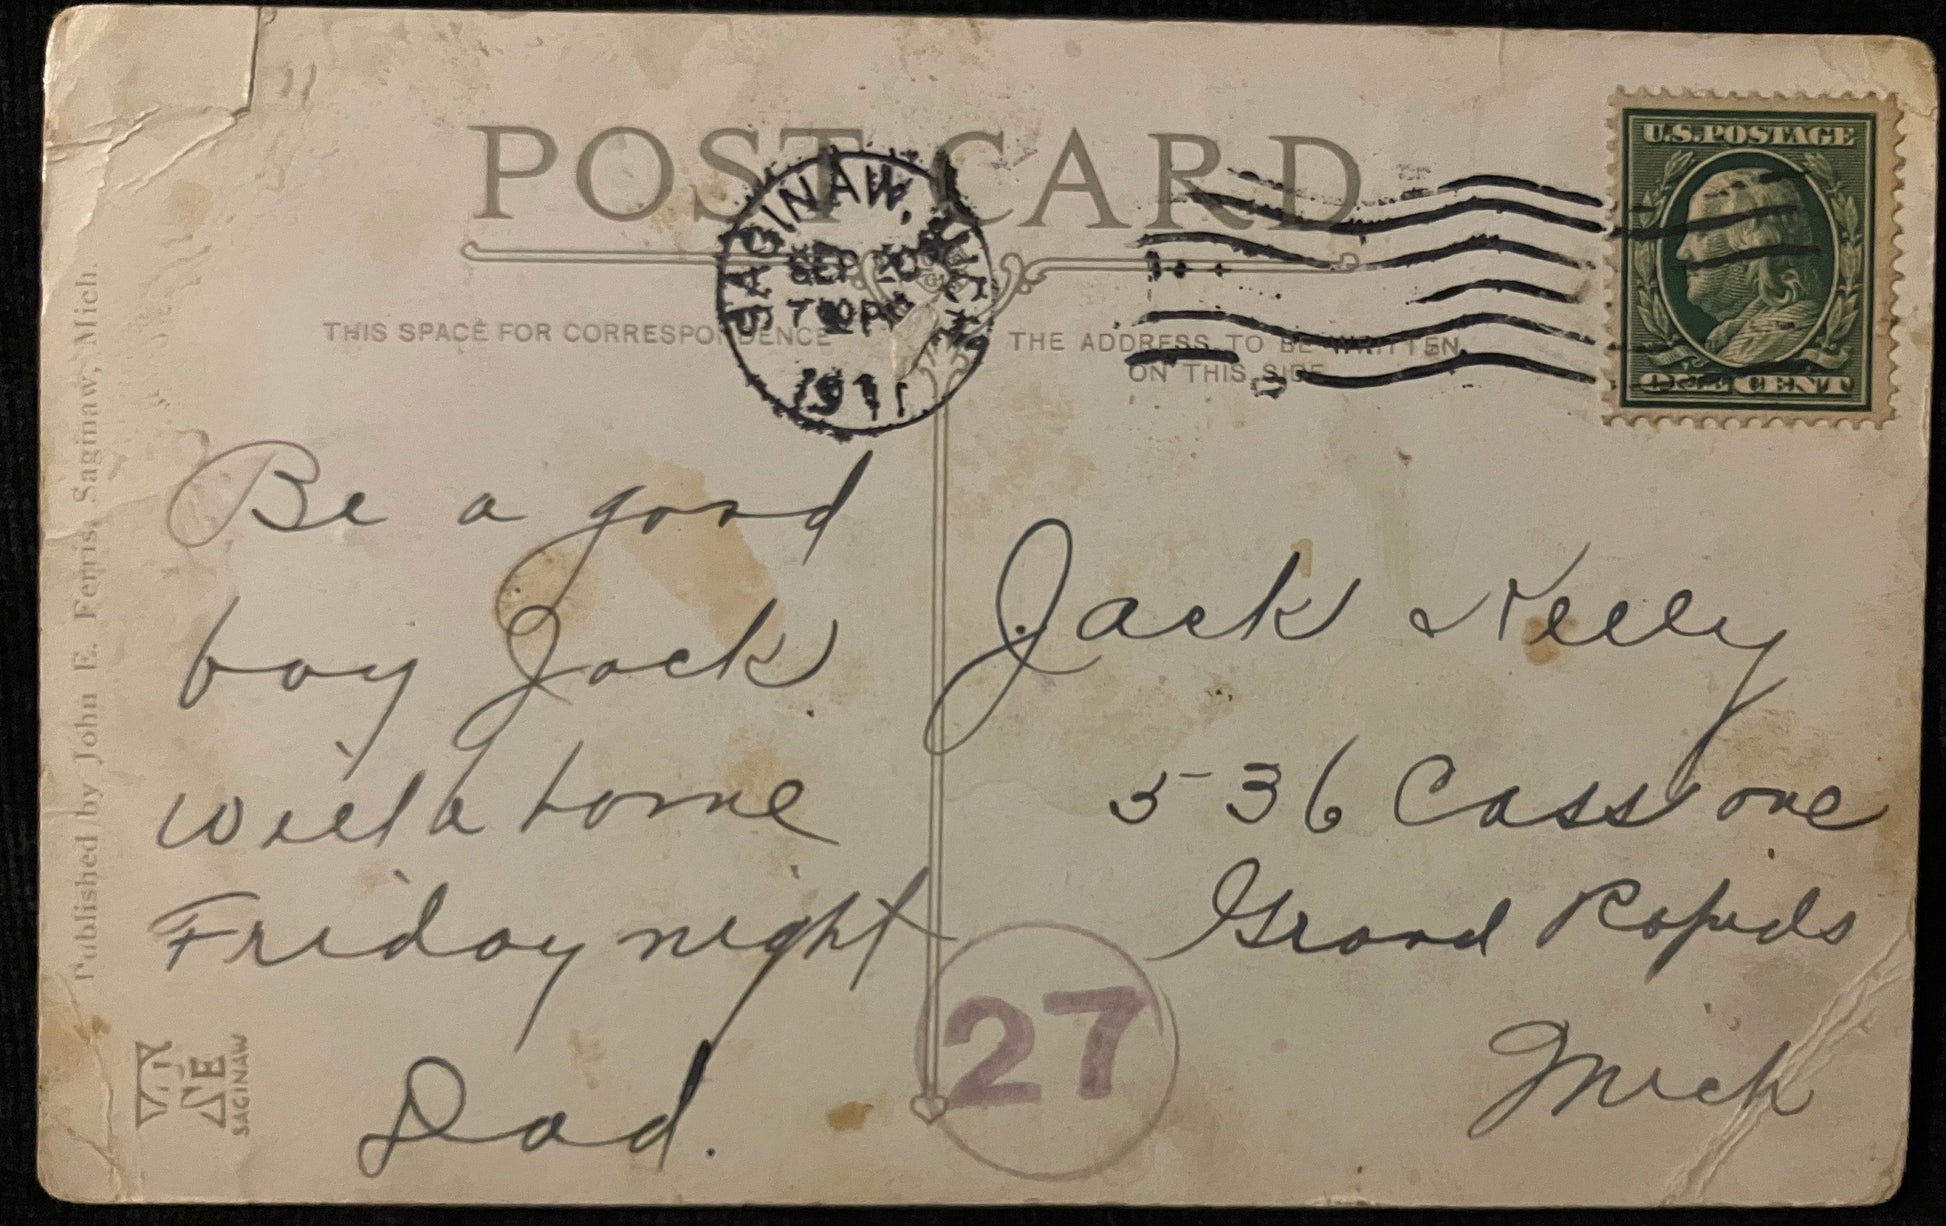 POST CARD
THIS SPACE FOR CORRESPONDENCE
THE ADDRESS TO BE WRITTEN
ON THIS SIDE
SAGINAW, MICH.
SEP 20
7 PM
1911
U.S. POSTAGE
CENT
Be a good
boy Jack
will b home
Friday night
Dad.
Jack Kelly
536 Cass ave
Grand Rapids
Mich
27
Published by John E. Ferris, Saginaw, Mich.
SAGINAW